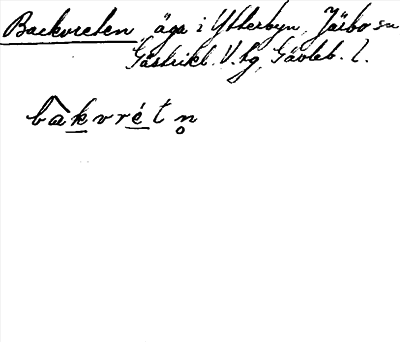 Backvreten äga i Ytterbyn, Järbo sn
Gästrikl. V. tg, Gävleb. l.
bàkvrétn̥